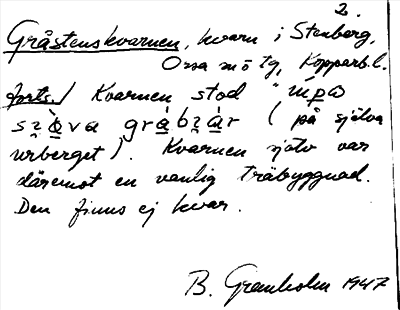 2.
Gråstenskvarnen, kvarn i Stenberg,
Orsa sn o tg, Kopparb. l.
forts./ Kvarnen stod "upa
szȯva grabzar (på själva
urberget). Kvarnen själv var
däremot en vanlig träbyggnad.
Den finns ej kvar.
B. Granholm 1947